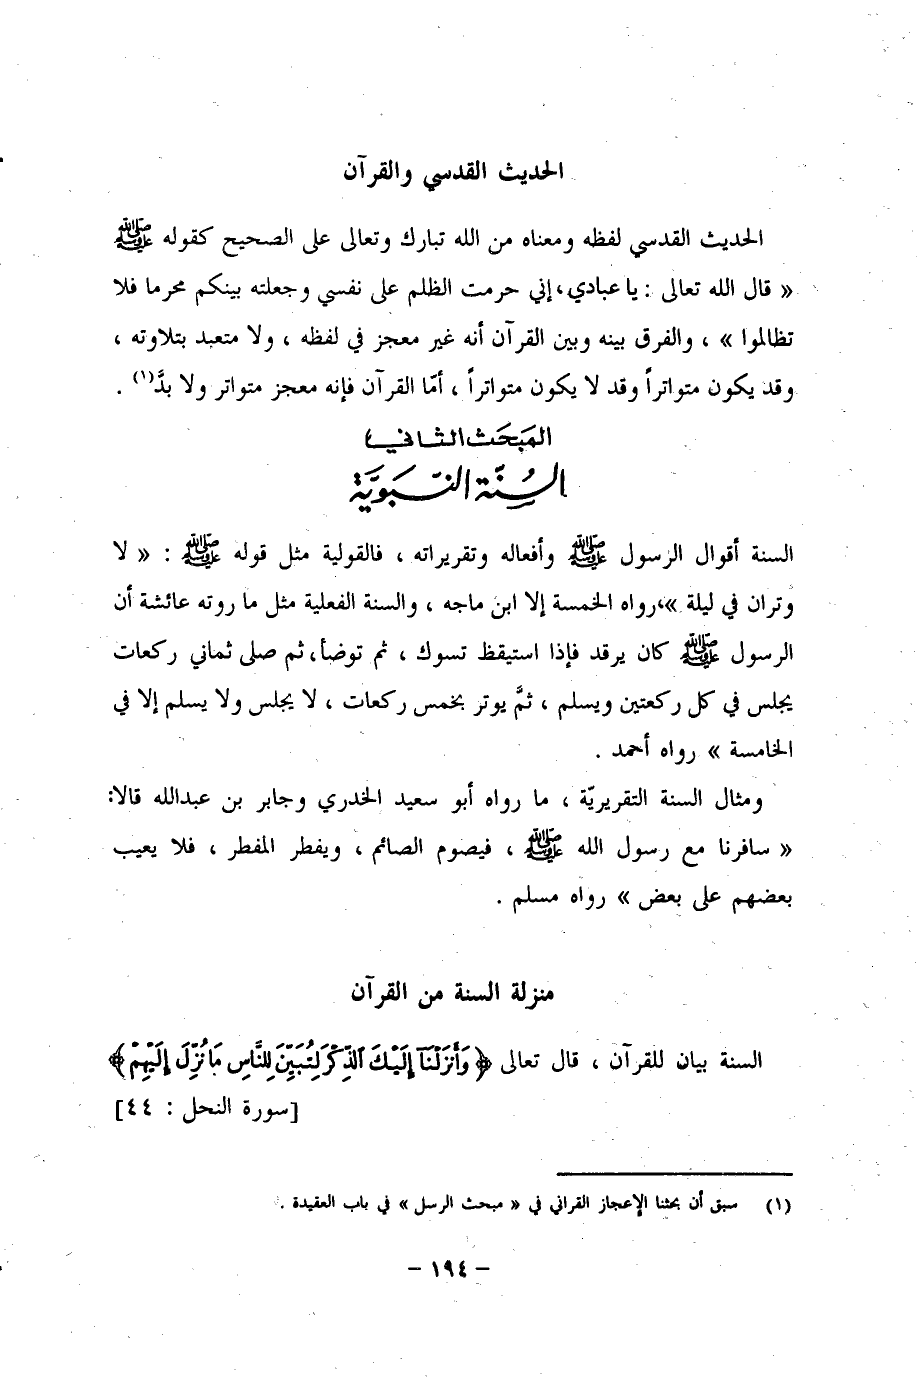 الحديث القدسي والقرآن
الحديث القدسي لفظه ومعناه من الله تبارك وتعالى على الصحيح كقوله ﷺ
« قال الله تعالى : يا عبادي، إني حرمت الظلم على نفسي وجعلته بينكم محرما فلا
تظالموا » ، والفرق بينه وبين القرآن أنه غير معجز في لفظه ، ولا متعبد بتلاوته ،
وقد يكون متواتراً وقد لا يكون متواتراً ، أمّا القرآن فإنه معجز متواتر ولا بدَّ(١) .
المبحَث الثاني
السنّة النّبويَّة
السنة أقوال الرسول ﷺ وأفعاله وتقريراته ، فالقولية مثل قوله ﷺ : « لا
وتران في ليلة »، رواه الخمسة إلا ابن ماجه ، والسنة الفعلية مثل ما روته عائشة أن
الرسول ﷺ كان يرقد فإذا استيقظ تسوك ، ثم توضأ، ثم صلى ثماني ركعات
يجلس في كل ركعتين ويسلم ، ثمَّ يوتر بخمس ركعات ، لا يجلس ولا يسلم إلا في
الخامسة » رواه أحمد .
ومثال السنة التقريريّة ، ما رواه أبو سعيد الخدري وجابر بن عبدالله قالا:
« سافرنا مع رسول الله ﷺ ، فيصوم الصائم ، ويفطر المفطر ، فلا يعيب
بعضهم على بعض » رواه مسلم .
منزلة السنة من القرآن
السنة بيان للقرآن ، قال تعالى ﴿ وَأَنزَلْنَآ إِلَيْكَ ٱلذِّكْرَ لِتُبَيِّنَ لِلنَّاسِ مَا نُزِّلَ إِلَيْهِمْ ﴾
[سورة النحل : ٤٤]
(١) سبق أن بحثنا الإعجاز القراني في « مبحث الرسل » في باب العقيدة .
- ١٩٤ -